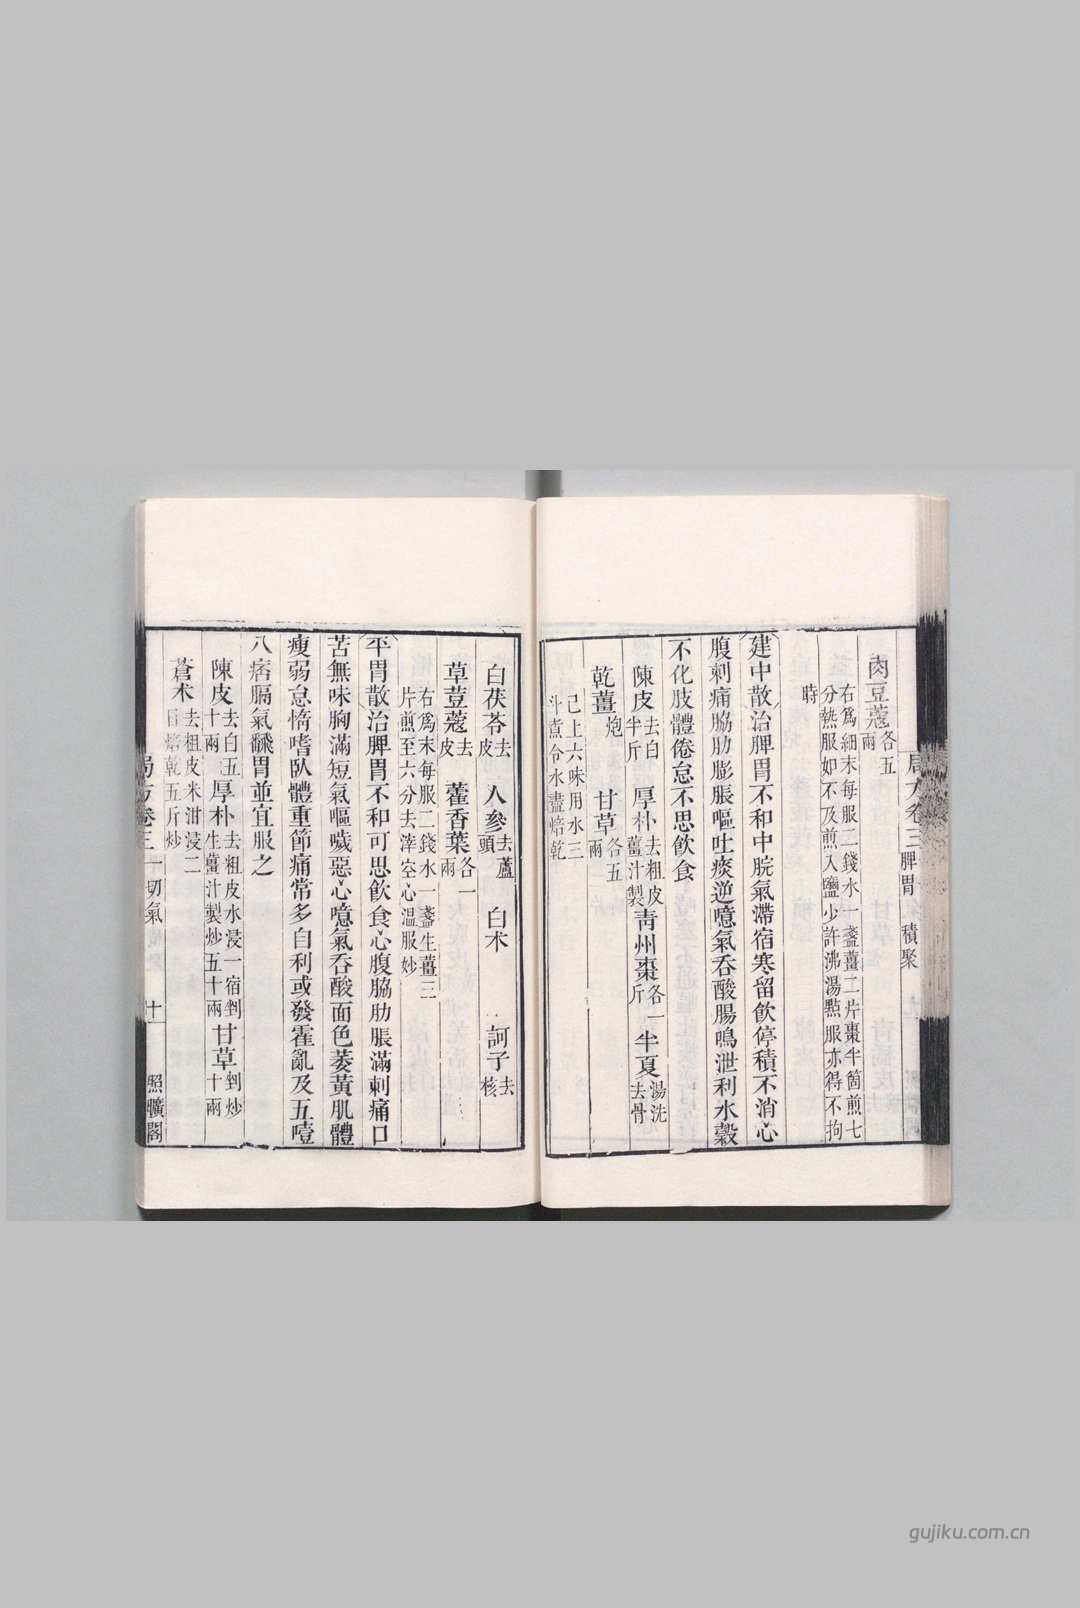 局方卷三 脾胃 積聚
肉豆蔻各五兩
右爲細末每服二錢水一盞薑二片棗半箇煎七
分熱服如不及煎入鹽少許沸湯點服亦得不拘
時
建中散治脾胃不和中脘氣滯宿寒留飲停積不消心
腹刺痛脇肋膨脹嘔吐痰逆噫氣吞酸腸鳴泄利水穀
不化肢體倦怠不思飲食
陳皮去白半斤 厚朴去粗皮薑汁製 青州棗各一斤 半夏湯洗去骨
乾薑炮 甘草各五兩
已上六味用水三
斗煑令水盡焙乾
白茯苓去皮 人參去蘆頭 白术 訶子去核
草荳蔻去皮 藿香葉各一兩
右爲末每服二錢水一盞生薑三
片煎至六分去滓空心溫服妙
平胃散治脾胃不和可思飲食心腹脇肋脹滿刺痛口
苦無味胸滿短氣嘔噦惡心噫氣吞酸面色萎黃肌體
瘦弱怠惰嗜臥體重節痛常多自利或發霍亂及五噎
八痞膈氣飜胃並宜服之
陳皮去白五十兩 厚朴去粗皮水浸一宿剉生薑汁製炒五十兩 甘草剉炒十兩
蒼术去粗皮米泔浸二日焙乾五斤炒
局方卷三 一切氣 十 照曠閣
gujiku.com.cn